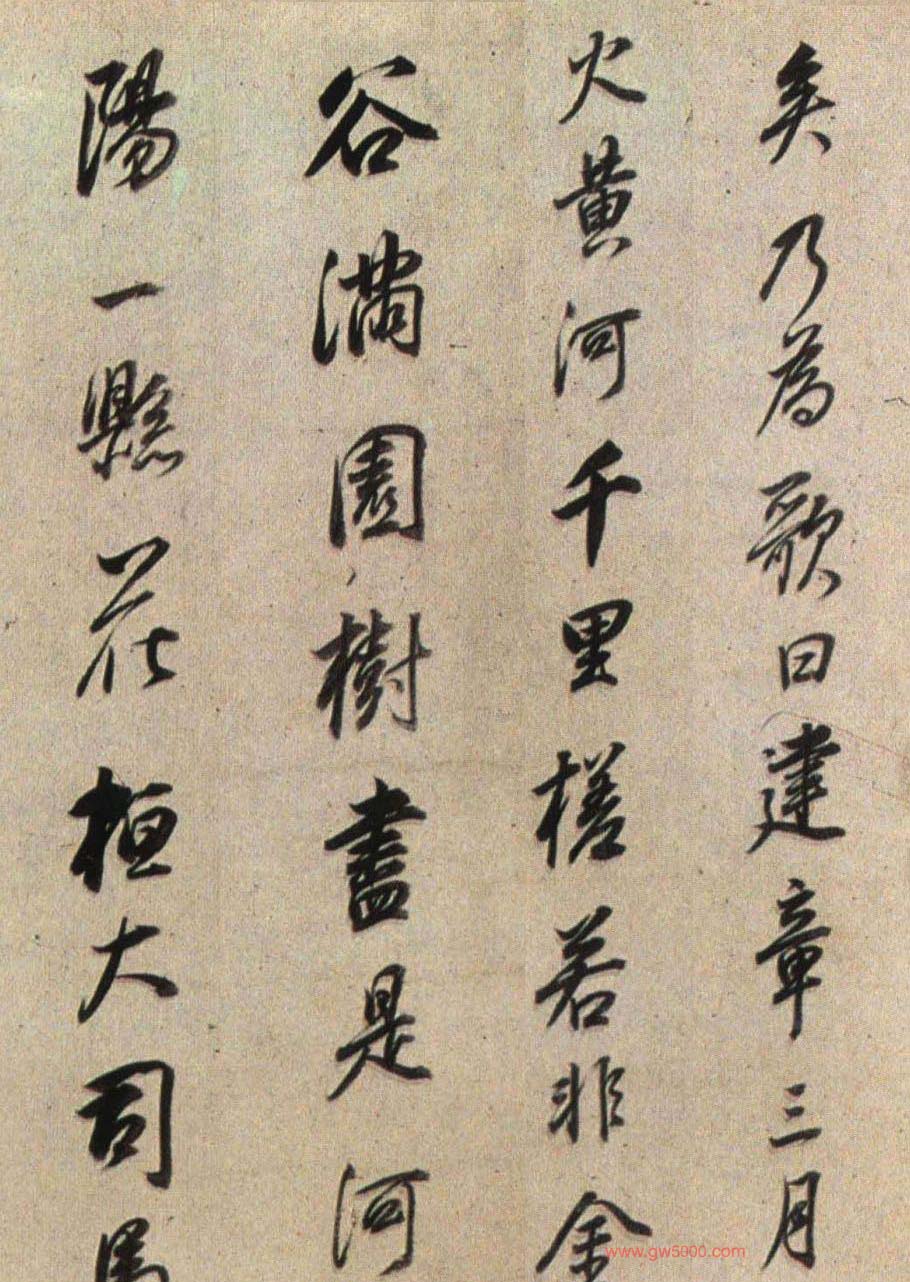 矣乃為歌曰建章三月
火黃河千里槎若非金
谷滿園樹盡是河
陽一縣花桓大司馬
www.gw5900.com